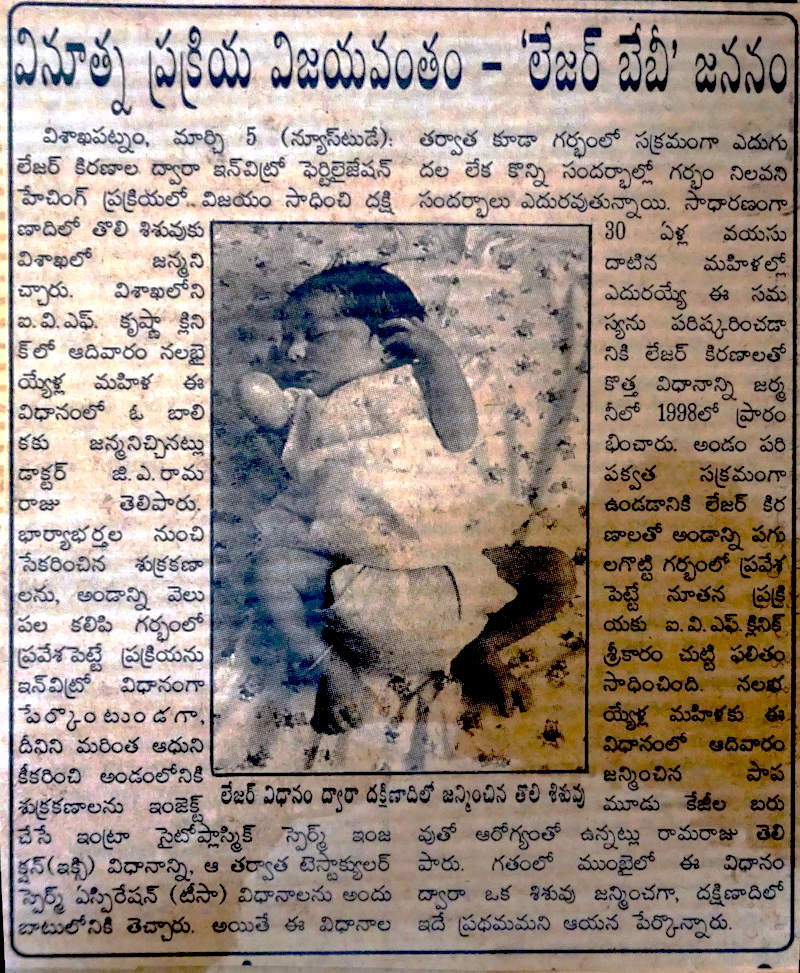 వినూత్న ప్రక్రియ విజయవంతం - 'లేజర్ బేబీ' జననం
విశాఖపట్నం, మార్చి 5 (న్యూస్‌టుడే):
లేజర్ కిరణాల ద్వారా ఇన్‌విట్రో ఫెర్టిలైజేషన్
హేచింగ్ ప్రక్రియలో విజయం సాధించి దక్షి
ణాదిలో తొలి శిశువుకు
విశాఖలో జన్మని
చ్చారు. విశాఖలోని
ఐ.వి.ఎఫ్. కృష్ణా క్లిని
క్‌లో ఆదివారం నలభై
య్యేళ్ల మహిళ ఈ
విధానంలో ఓ బాలి
కకు జన్మనిచ్చినట్లు
డాక్టర్ జి.ఎ.రామ
రాజు తెలిపారు.
భార్యాభర్తల నుంచి
సేకరించిన శుక్రకణా
లను, అండాన్ని వెలు
పల కలిపి గర్భంలో
ప్రవేశపెట్టే ప్రక్రియను
ఇన్‌విట్రో విధానంగా
పేర్కొంటుండగా,
దీనిని మరింత ఆధుని
కీకరించి అండంలోనికి
శుక్రకణాలను ఇంజెక్ట్
చేసే ఇంట్రా సైటోప్లాస్మిక్ స్పెర్మ్ ఇంజ
క్షన్(ఇక్సి) విధానాన్ని, ఆ తర్వాత టెస్టాక్యులర్
స్పెర్మ్ ఏస్పిరేషన్ (టీసా) విధానాలను అందు
బాటులోనికి తెచ్చారు. అయితే ఈ విధానాల
తర్వాత కూడా గర్భంలో సక్రమంగా ఎదుగు
దల లేక కొన్ని సందర్భాల్లో గర్భం నిలవని
సందర్భాలు ఎదురవుతున్నాయి. సాధారణంగా
30 ఏళ్ల వయసు
దాటిన మహిళల్లో
ఎదురయ్యే ఈ సమ
స్యను పరిష్కరించడా
నికి లేజర్ కిరణాలతో
కొత్త విధానాన్ని జర్మ
నీలో 1998లో ప్రారం
భించారు. అండం పరి
పక్వత సక్రమంగా
ఉండడానికి లేజర్ కిర
ణాలతో అండాన్ని పగు
లగొట్టి గర్భంలో ప్రవేశ
పెట్టే నూతన ప్రక్రి
యకు ఐ.వి.ఎఫ్.క్లినిక్
శ్రీకారం చుట్టి ఫలితం
సాధించింది. నలభ
య్యేళ్ల మహిళకు ఈ
విధానంలో ఆదివారం
జన్మించిన పాప
మూడు కేజీల బరు
వుతో ఆరోగ్యంతో ఉన్నట్లు రామరాజు తెలి
పారు. గతంలో ముంబైలో ఈ విధానం
ద్వారా ఒక శిశువు జన్మించగా, దక్షిణాదిలో
ఇదే ప్రథమమని ఆయన పేర్కొన్నారు.
లేజర్ విధానం ద్వారా దక్షిణాదిలో జన్మించిన తొలి శిశువు